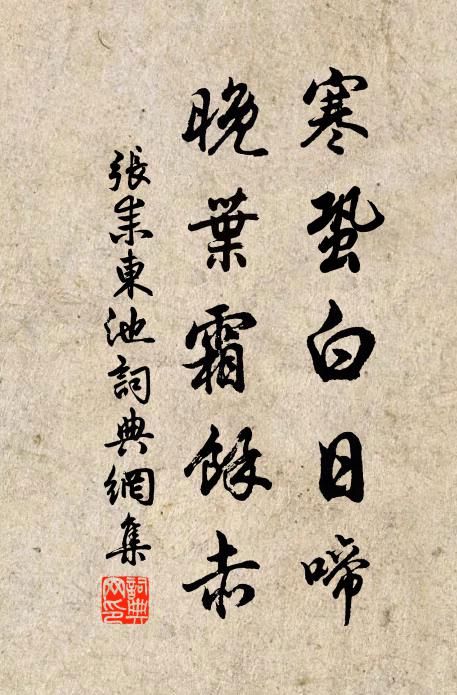 寒蛩白日啼
晚葉霜餘赤
張耒東池詞典網集
詞典網印